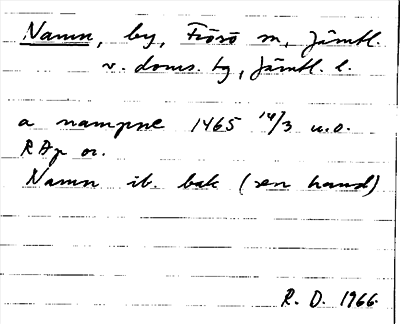 Namn, by, Frösö sn, Jämtl.
v. doms. tg, Jämtl. l.
a nampne 1465 14/3 u.o.
RAp or.
Namn ib. bak (sen hand)
R. D. 1966.